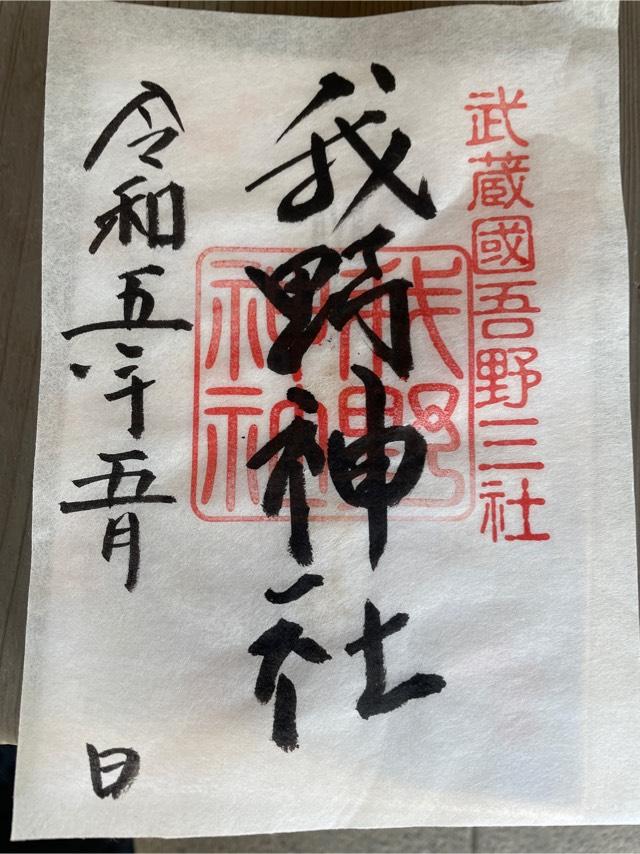 武蔵國吾野三社
我野神社
我野神社
令和五年五月 日